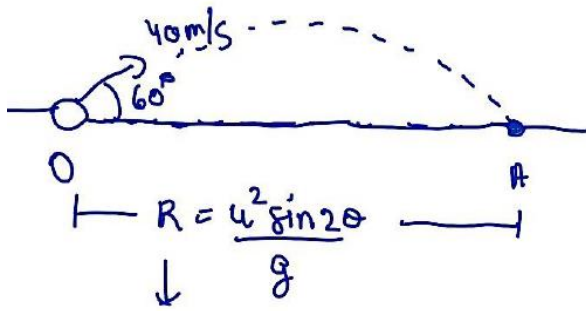 40m/s
60°
O A
R = u² sin2θ / g